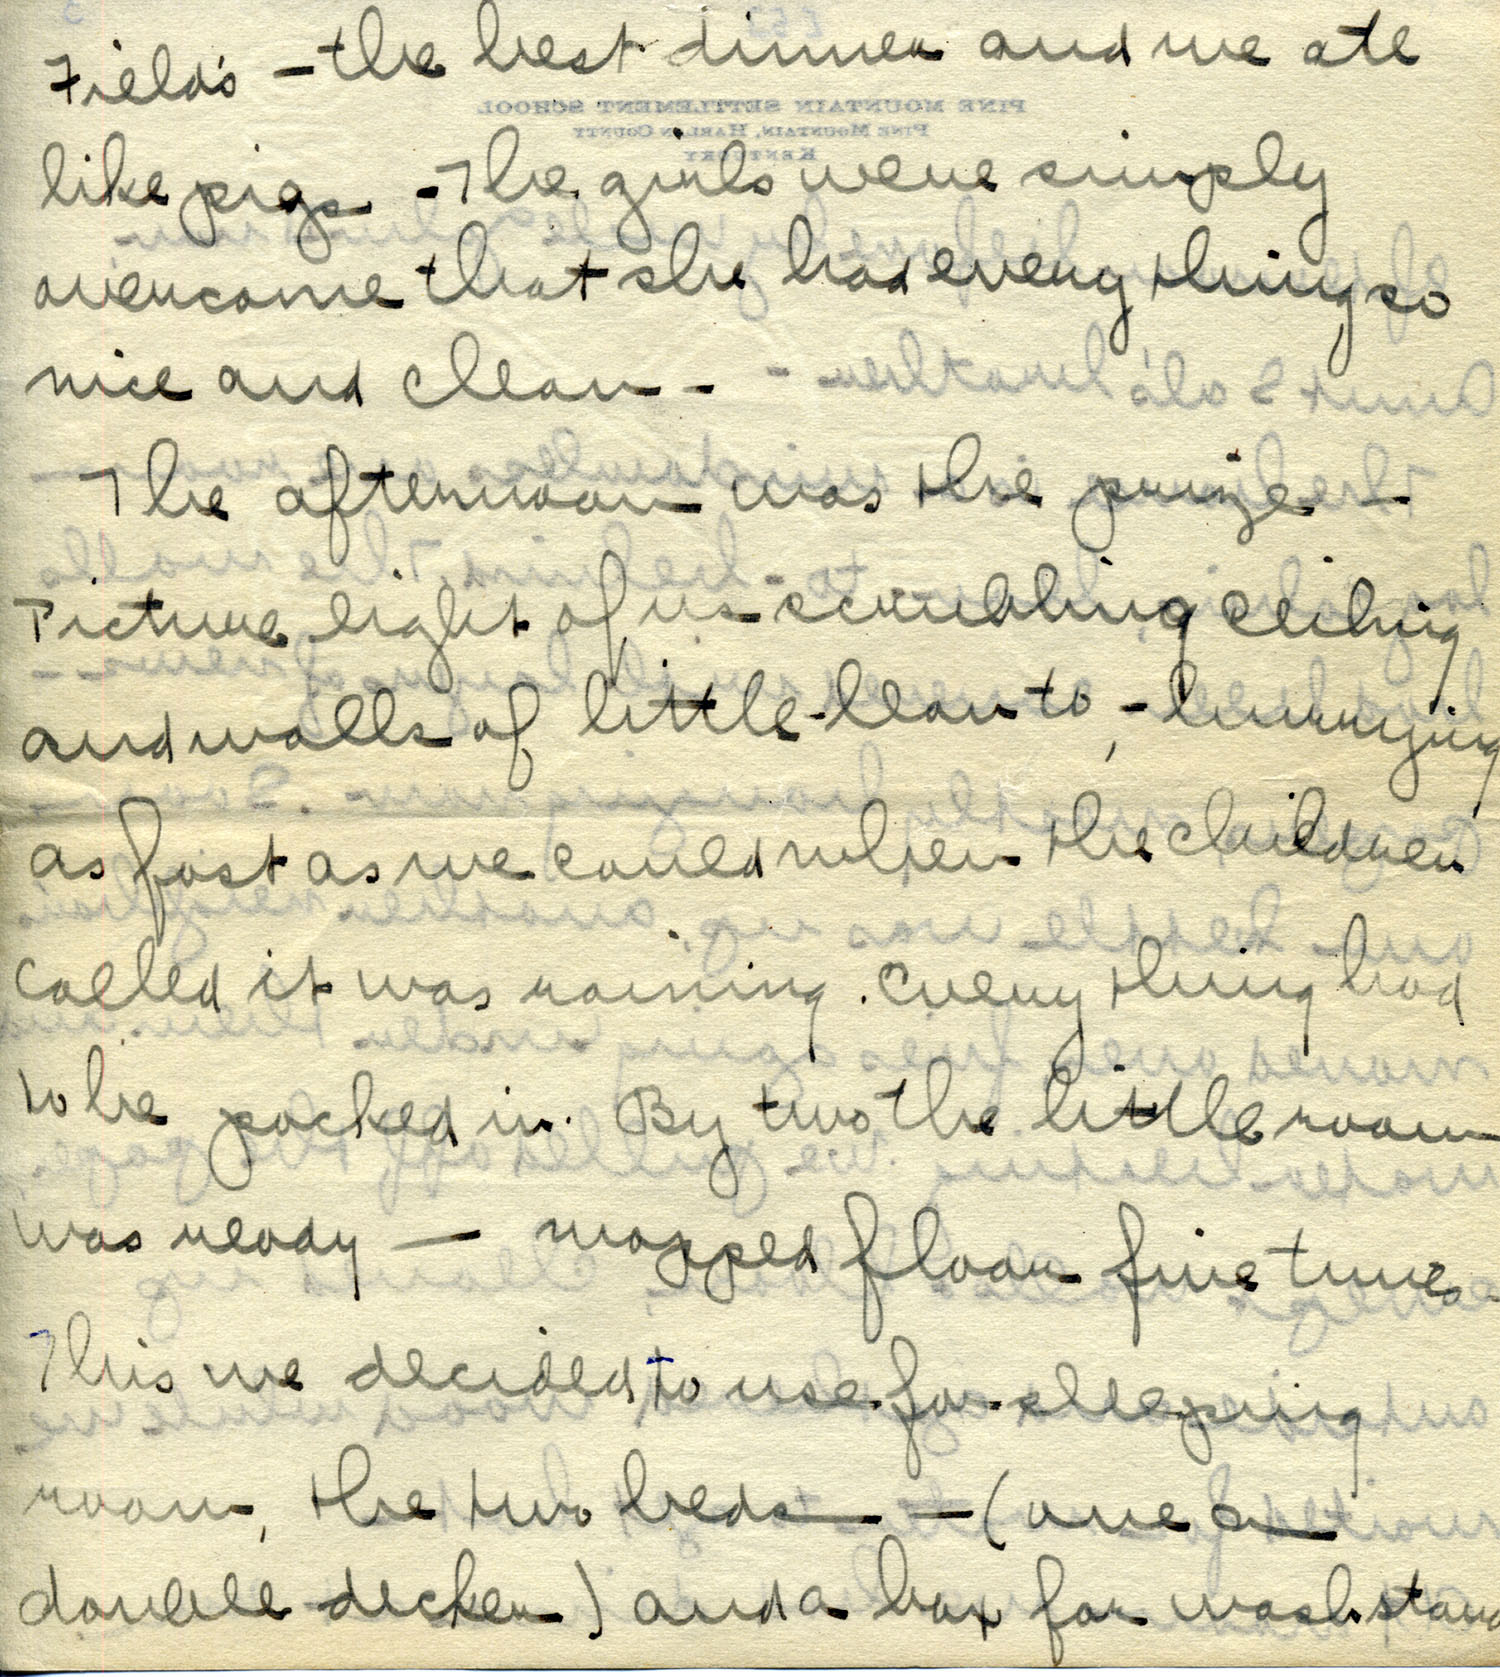 Field's – the best dinner and we ate
like pigs – The girls were simply
overcome that she had every thing so
nice and clean –
The afternoon was the prize –
Picture eight of us scrubbing ceiling
and walls of little lean to, – hurrying
as fast as we could when the children
called it was raining. Every thing had
to be packed in. By two the little room
was ready — mopped floor five times.
This we decided to use for sleeping
room, the two beds — (one a
double decker) and a box for wash stand
PINE MOUNTAIN SETTLEMENT SCHOOL
PINE MOUNTAIN, HARLAN COUNTY
KENTUCKY